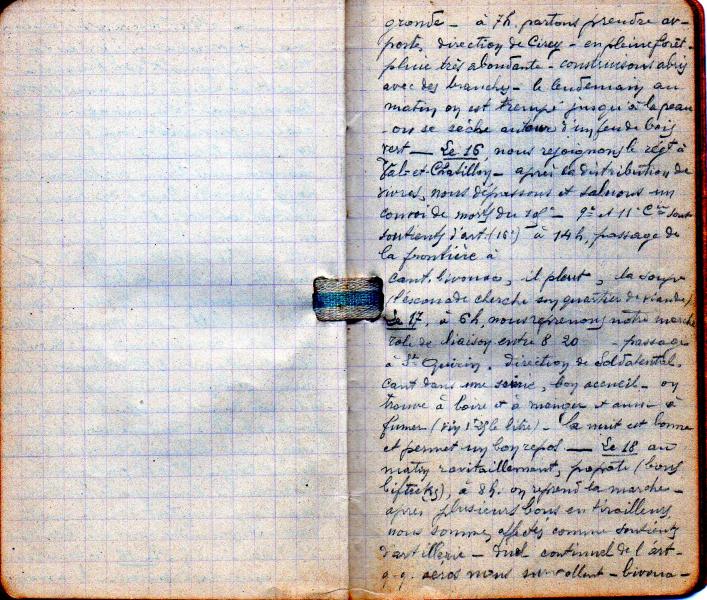 gronde - à 7h, partons prendre av-
poste, direction de Cirey - en pleine forêt -
pluie très abondante - construisons abris
avec des branches - le lendemain au
matin on est trempé jusqu'à la peau
- on se sèche autour d'un feu de bois
vert — Le 16, nous rejoignons le régt à
Val-et-Chatillon - après la distribution de
vivres, nous dépassons et saluons un
convoi de morts du - 9e et 11e Cie sont
soutiens d'art (16e) à 14h, passage de
la frontière à
Cant. bivouac, il pleut, la soupe
(l'escouade cherche son quartier de viande)
Le 17, à 6h, nous reprenons notre marche
rôle de liaison entre 8 20 - passage
à St Quirin, direction de Soldatenthal.
Cant dans une scierie, bon accueil - on
trouve à boire et à manger et aussi à
fumer (vin 1f25 le litre) - la nuit est bonne
et permet un bon repos — Le 18 au
matin ravitaillement, popote (bons
biftecks), à 8h. on reprend la marche -
après plusieurs bons en tirailleurs
nous sommes affectés comme soutiens
d'artillerie - duel continuel de l'art -
q.q. aéros nous survollent - bivoua-